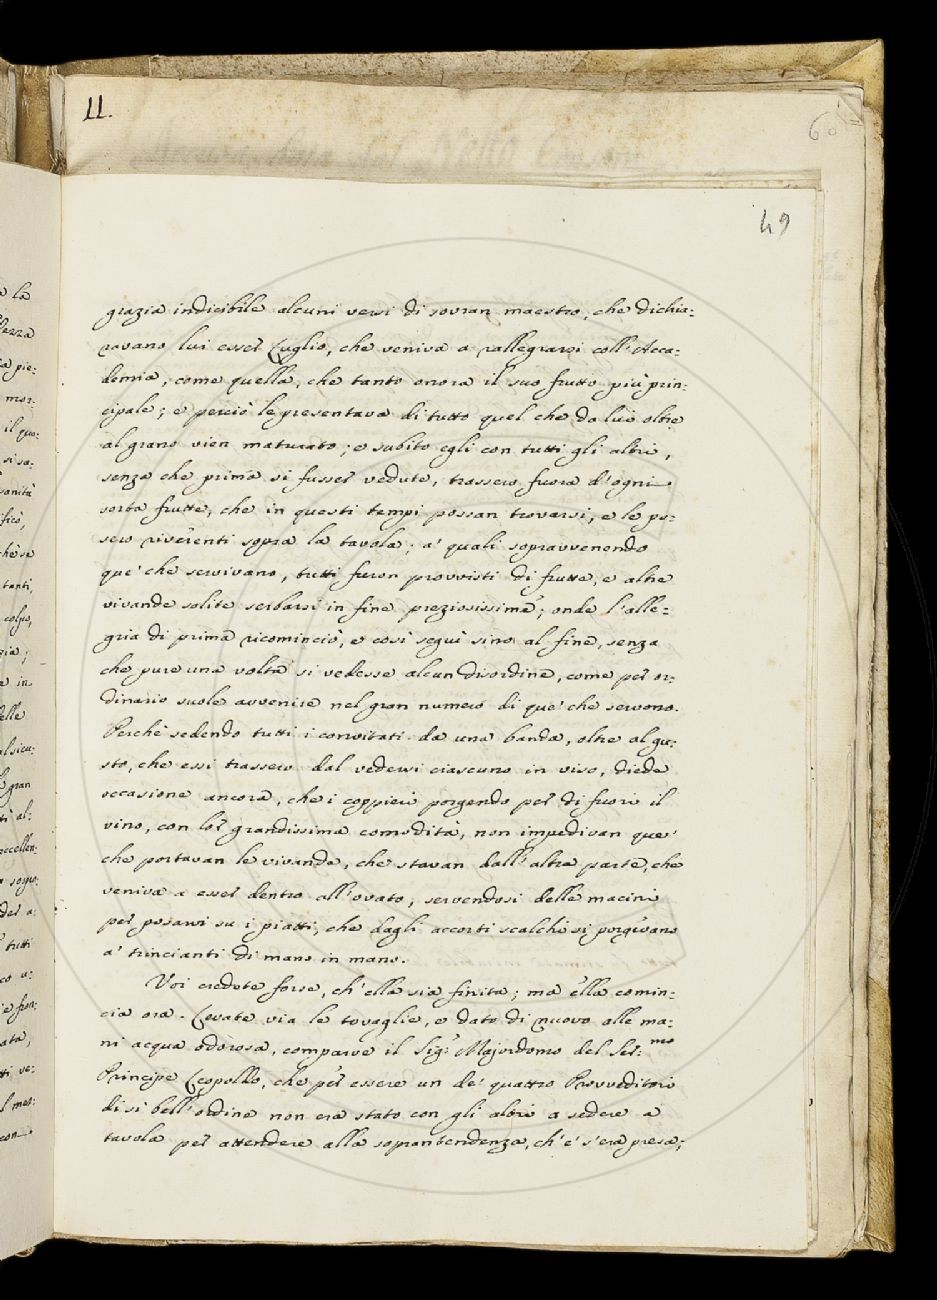 11.
60
49
grazia indicibile alcuni versi di sovran maestro, che dichia:
ravano lui esser Luglio, che veniva a rallegrarsi coll'Acca:
demia, come quella, che tanto onora il suo frutto più prin:
cipale; e perciò le presentava di tutto quel che da lui oltre
al grano vien maturato; e subito egli con tutti gli altri,
senza che prima si fusser vedute, trassero fuora d'ogni
sorta frutte, che in questi tempi possan trovarsi, e le po:
sero riverenti sopra la tavola; a' quali sopravvenendo
que' che servivano, tutti furon provvisti di frutte, e altre
vivande solite serbarsi in fine preziosissime; onde l'alle:
gria di prima ricominciò, e così seguì sino al fine, senza
che pure una volta si vedesse alcun disordine, come per or:
dinario suole avvenire nel gran numero di que' che servono.
Perchè sedendo tutti i convitati da una banda, oltre al gu:
sto, che essi trassero dal vedersi ciascuno in viso, diede
occasione ancora, che i coppieri porgendo per di fuori il
vino, con lor grandissima comodità, non impedivan que'
che portavan le vivande, che stavan dall'altra parte, che
veniva a esser dentro all'ovato, servendosi delle macini
per posarvi su i piatti, che dagli accorti scalchi si porgevano
a' trincianti di mano in mano.
Voi credete forse, ch'ella sia finita; ma ella comin:
cia ora. Levate via le tovaglie, e dato di nuovo alle ma:
ni acqua odorosa, comparve il Sig.r Majordomo del Ser:mo
Principe Leopoldo, che per essere un de' quattro Provveditori
di sì bell'ordine non era stato con gli altri a sedere a
tavola per attendere alla soprantendenza, ch'e' s'era presa;